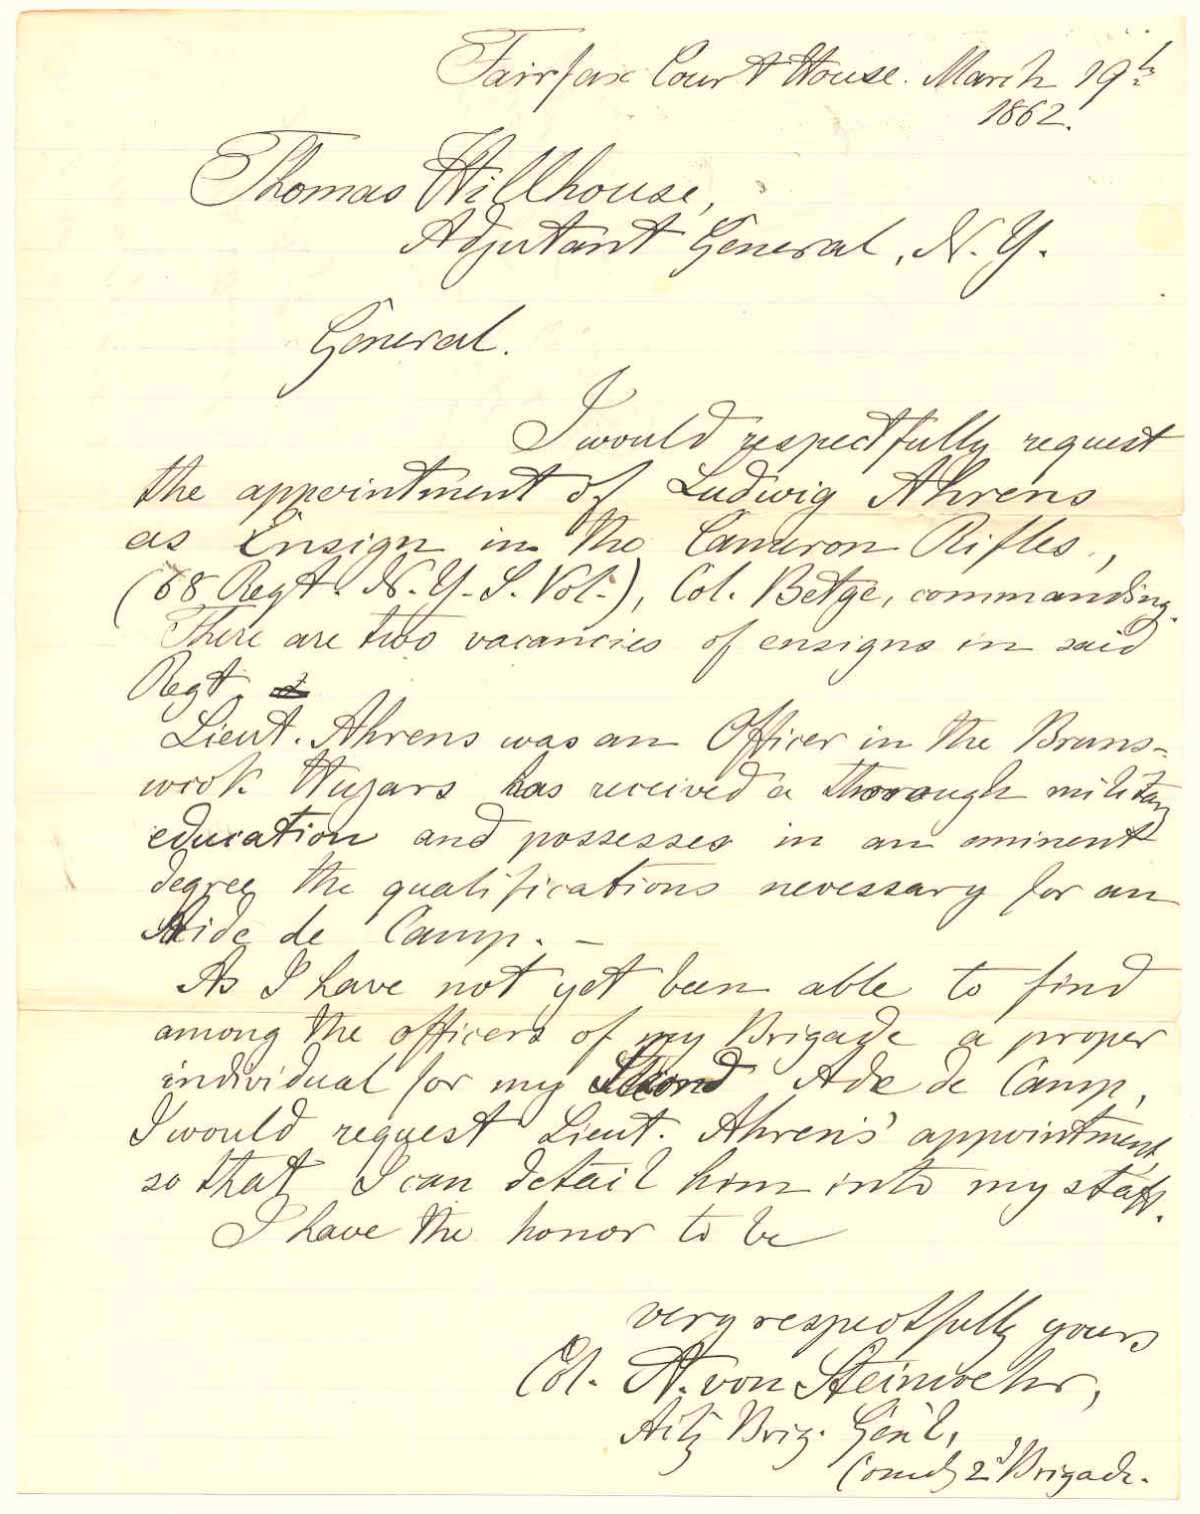 Fairfax Court House. March 19th
1862.
Thomas Hillhouse,
Adjutant General, N. Y.
General.
I would respectfully request
the appointment of Ludwig Ahrens
as Ensign in the Cameron Rifles,
(68 Regt. N. Y. S. Vol.), Col. Betge, commanding.
There are two vacancies of ensigns in said
Regt.
Lieut. Ahrens was an Officer in the Bruns-
wick Huzars has received a thorough military
education and possesses in an eminent
degree the qualifications necessary for an
Aide de Camp. —
As I have not yet been able to find
among the officers of my Brigade a proper
individual for my Second Ade de Camp,
I would request Lieut. Ahrens' appointment,
so that I can detail him into my staff.
I have the honor to be
very respectfully yours
Col. A. von Steinwehr,
Actg Brig. Gen'l,
Comdg 2d Brigade.